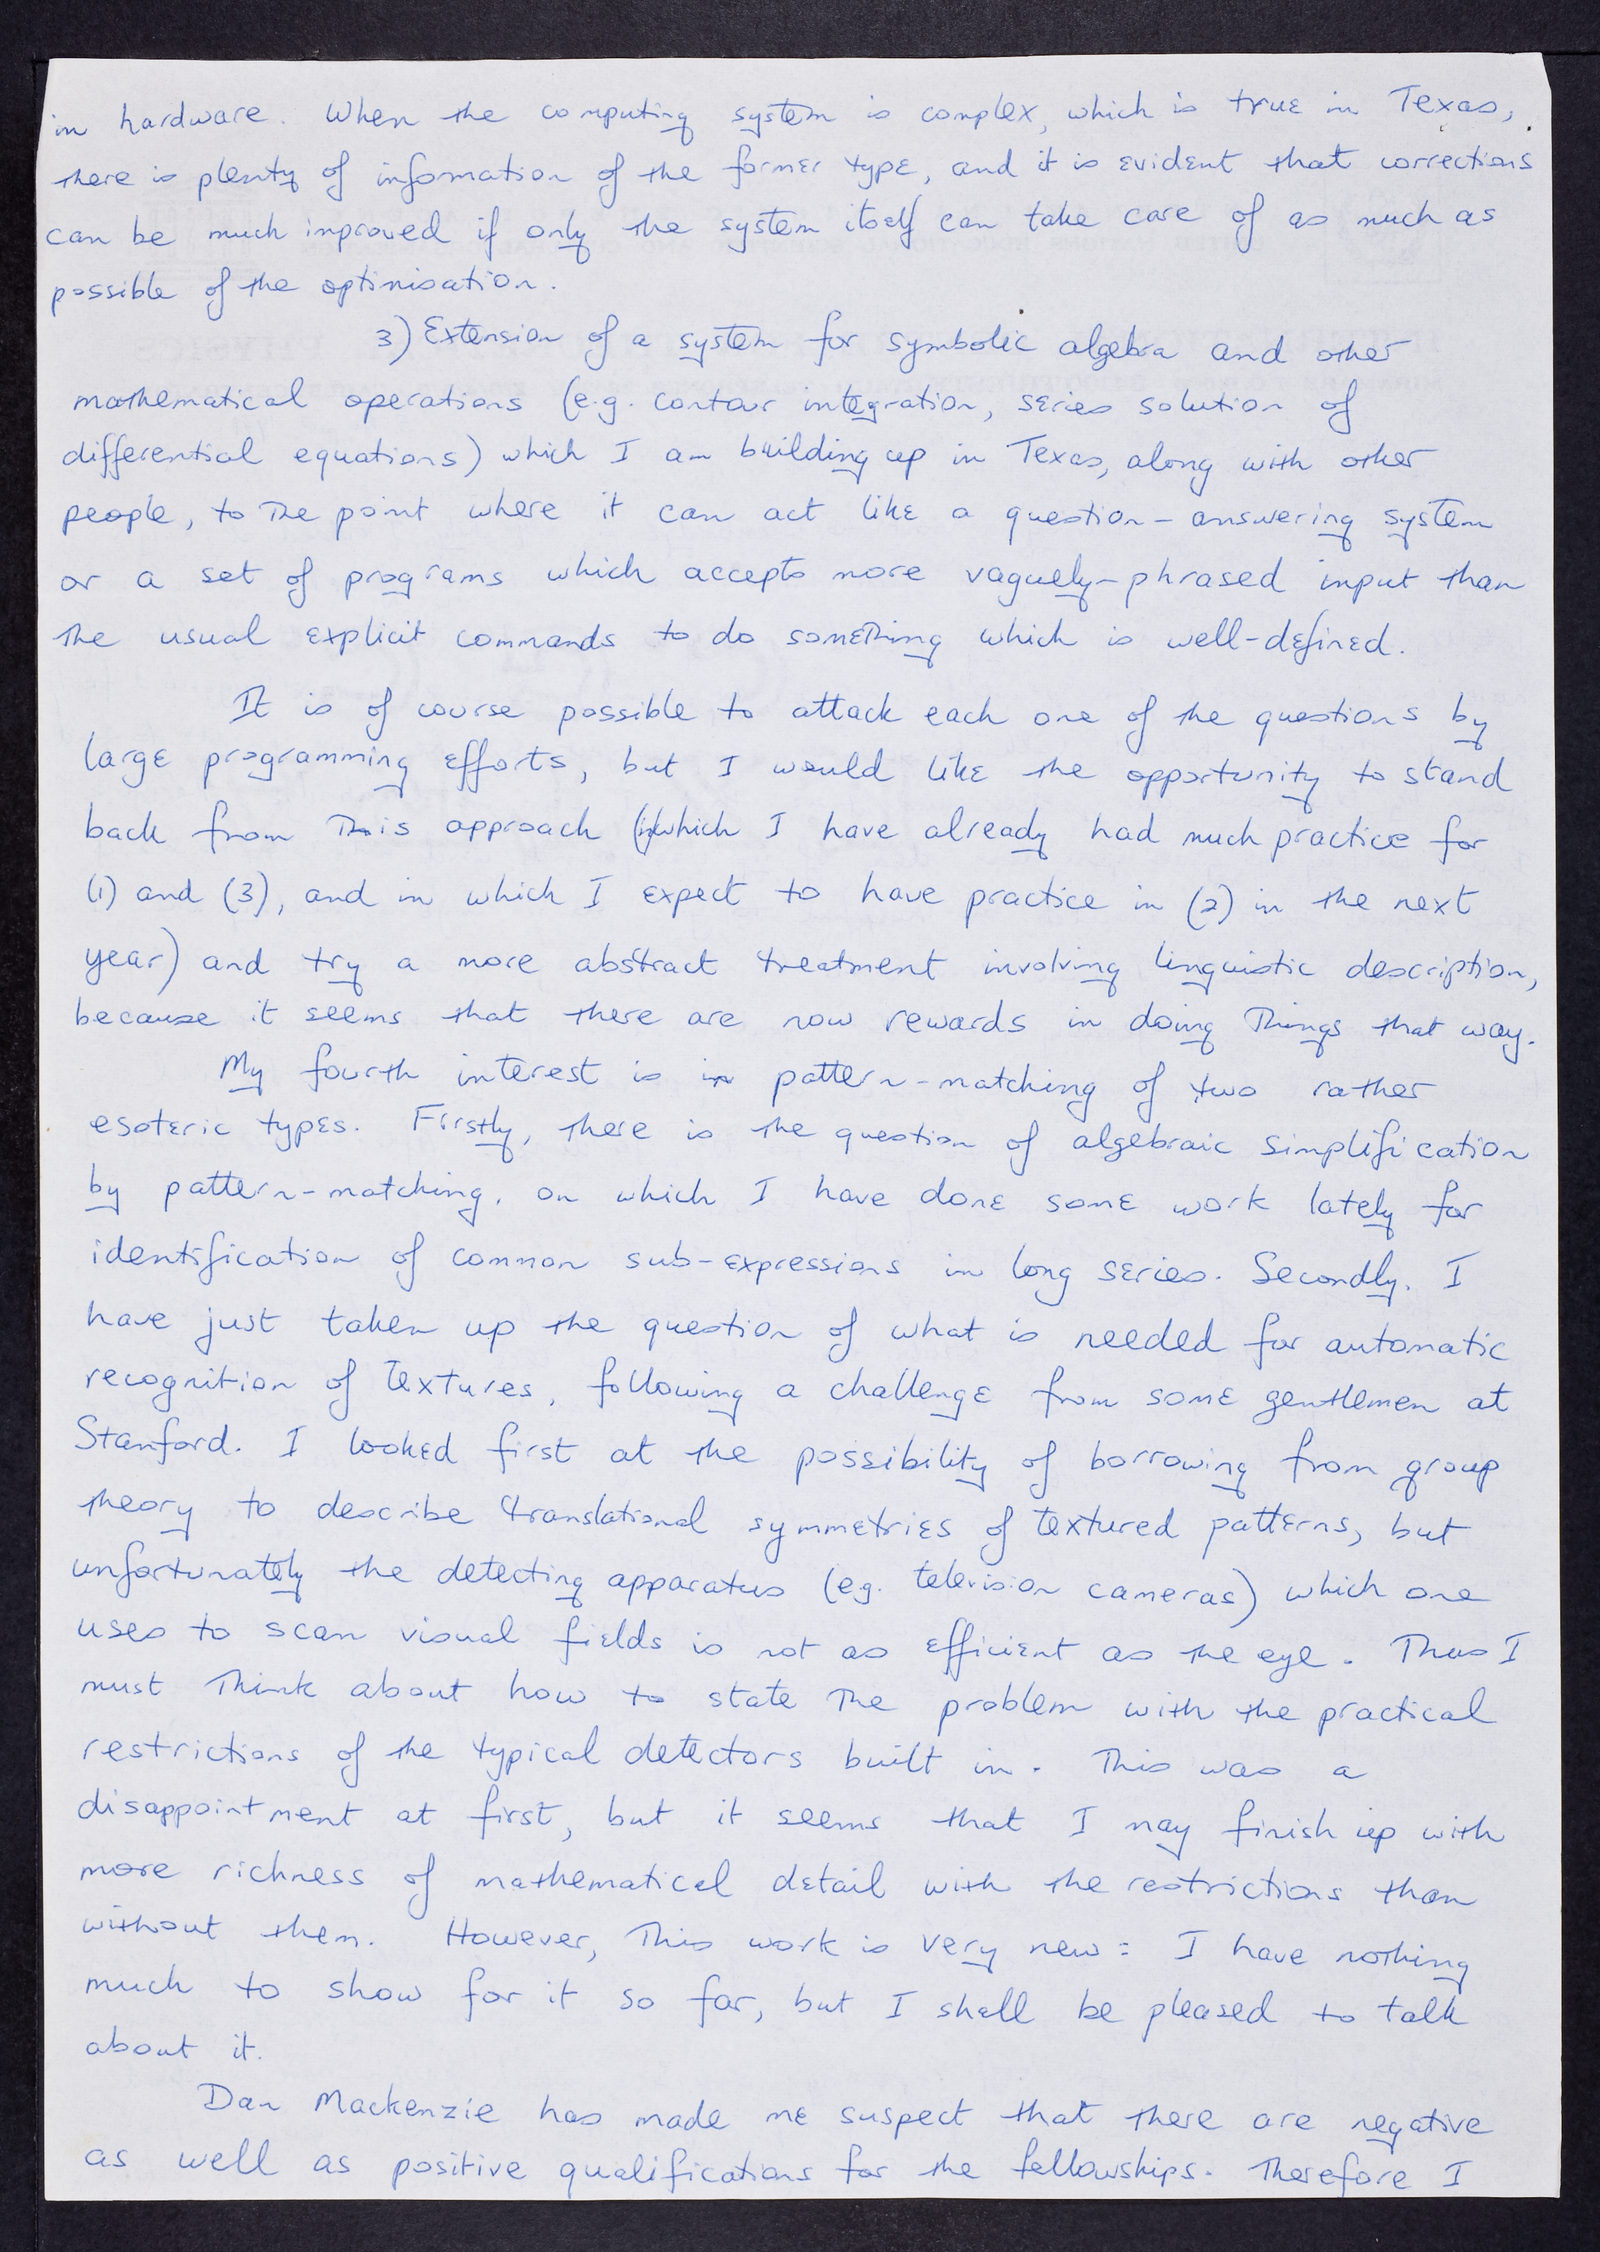 in hardware. When the computing system is complex, which is true in Texas,
there is plenty of information of the former type, and it is evident that corrections
can be much improved if only the system itself can take care of as much as
possible of the optimisation.
3) Extension of a system for symbolic algebra and other
mathematical operations (e.g. contour integration, series solution of
differential equations) which I am building up in Texas, along with other
people, to the point where it can act like a question-answering system
or a set of programs which accepts more vaguely-phrased input than
the usual explicit commands to do something which is well-defined.
It is of course possible to attack each one of the questions by
large programming efforts, but I would like the opportunity to stand
back from this approach (in which I have already had much practice for
(1) and (3), and in which I expect to have practice in (2) in the next
year) and try a more abstract treatment involving linguistic description,
because it seems that there are now rewards in doing things that way.
My fourth interest is in pattern-matching of two rather
esoteric types. Firstly, there is the question of algebraic simplification
by pattern-matching, on which I have done some work lately for
identification of common sub-expressions in long series. Secondly, I
have just taken up the question of what is needed for automatic
recognition of textures, following a challenge from some gentlemen at
Stanford. I looked first at the possibility of borrowing from group
theory to describe translational symmetries of textured patterns, but
unfortunately the detecting apparatus (e.g. television cameras) which one
uses to scan visual fields is not as efficient as the eye. Thus I
must think about how to state the problem with the practical
restrictions of the typical detectors built in. This was a
disappointment at first, but it seems that I may finish up with
more richness of mathematical detail with the restrictions than
without them. However, this work is very new: I have nothing
much to show for it so far, but I shall be pleased to talk
about it.
Dan Mackenzie has made me suspect that there are negative
as well as positive qualifications for the fellowships. Therefore I